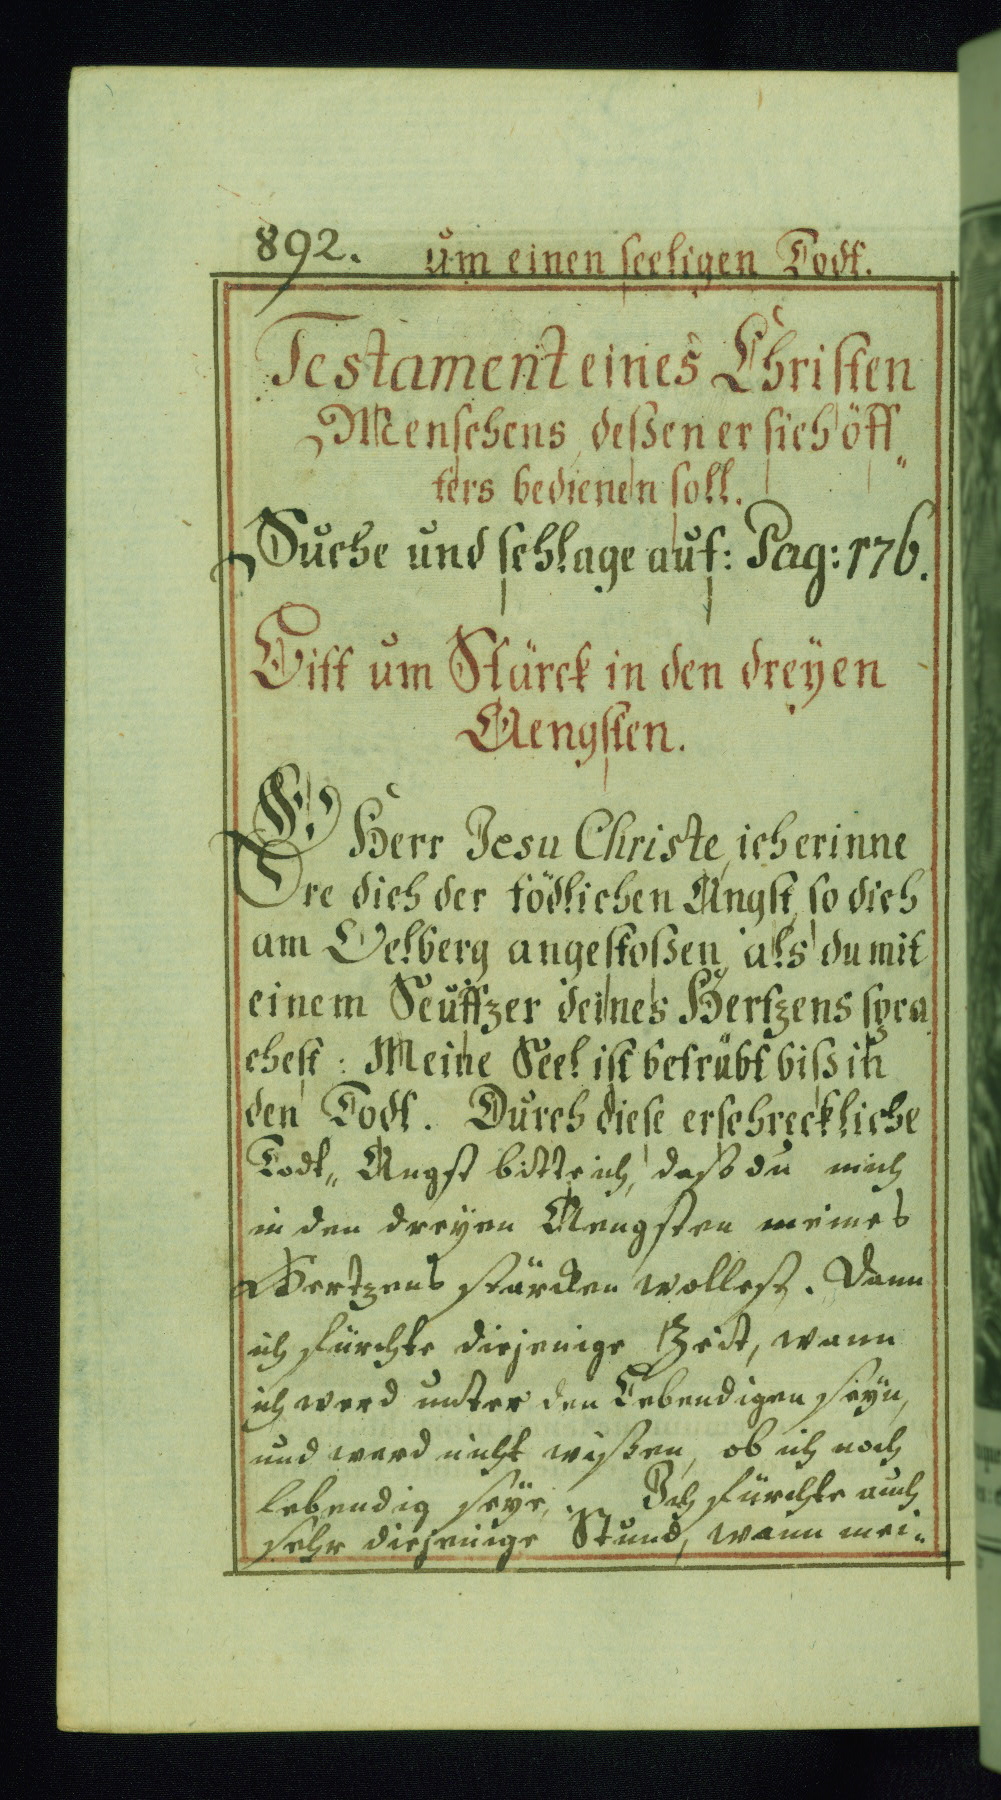 892. um einen seeligen Todt.
Testament eines Christen
Menschens, deßen er sich öff„
ters bedienen soll.
Suche und schlage auf: Pag: 176.
Bitt um Stärck in den dreÿen
Aengsten.
O! Herr Jesu Christe, ich erinne
re dich der tödlichen Angst, so dich
am Oelberg angestoßen, als du mit
einem Seuffzer deines Hertzens spra
chest: Meine Seel ist betrübt biß in
den Todt. Durch diese erschreckliche
Todt„ Angst bitte ich, daß du mich
in den dreÿen Aengsten meines
Hertzens stärcken wollest. Dann
ich fürchte diejenige Zeit, wann
ich werd unter den Lebendigen seÿn,
und werd nicht wißen, ob ich noch
lebendig seÿe, Ich fürchte auch
sehr diejenige Stund, wann mei„